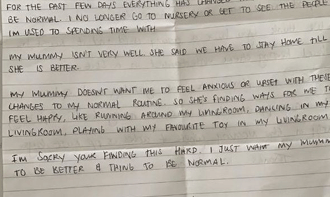 FOR THE PAST FEW DAYS EVERYTHING HAS
BE NORMAL I NO LONGER GO TO NURSERY OR GET TO SEE THE PEOPLE
IM USED TO SPENDING TIME WITH
MY MUMMY ISN'T VERY WELL. SHE SAID WE HAVE TO STAY HOME TILL
SHE IS BETTER.
MY MUMMY DOESN'T WANT ME TO FEEL ANXIOUS OR UPSET WITH THESE
CHANGES TO MY NORMAL ROUTINE. SO SHE'S FINDING WAYS FOR ME T
FEEL HAPPY, LIKE RUNNING AROUND MY LIVINGROOM, DANCING IN MY
LIVINGROOM, PLAYING WITH MY FAVOURITE TOY IN MY LIVINGROOM
IM SORRY YOUR FINDING THIS HARD. I JUST WANT MY MUMM
TO BE BETTER & THING TO BE NORMAL.